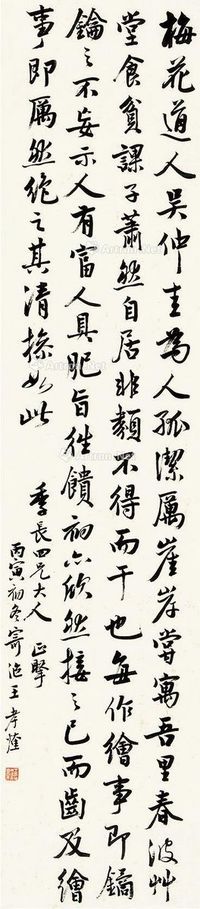 梅花道人吴仲圭為人孤潔厲崖岸嘗寓吾里春波艸
堂食貧課子蕭然自居非類不得而干也每作繪事即鐍
鑰之不妄示人有富人具肥旨徃饋初亦欣然接之已而齒及繪
事即厲然絶之其清操如此
季長四兄大人正擎
丙寅初冬寄滬王孝煃